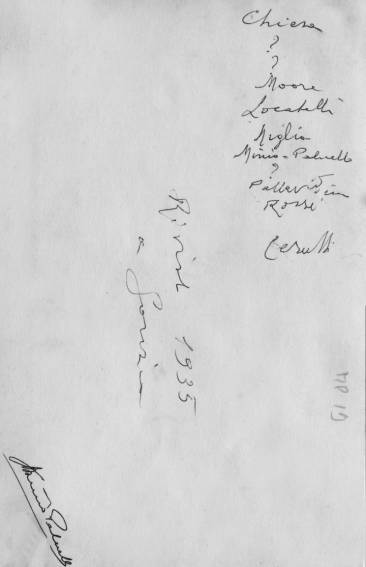 Chiesa
?
?
Moore
Locatelli
Miglio
Minio-Paluello
?
Pallavicin
Rossi
Cerulli
1935
a Gorizia
Minio Paluello